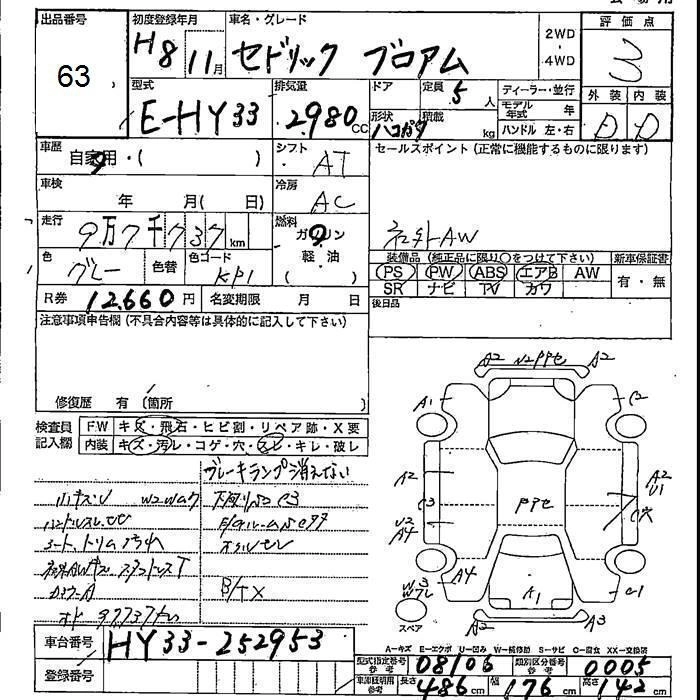 出品番号 初度登録年月 車名・グレード 評価点
63 H8 11月 セドリック ブロアム 2WD・4WD 3
型式 排気量 ドア 定員 ディーラー・並行 外装 内装
E-HY33 2980cc 5人 モデル年式 年 D D
形状 ハコガタ 積載 kg ハンドル 左・右
車歴 自家用・( ) シフト AT セールスポイント (正常に機能するものに限ります)
車検 年 月( 日) 冷房 AC
走行 9万7千737km 燃料 ガソリン 軽・油 社外AW
色 グレー 色替 色コード KP1 装備品 (純正品に限り○をつけて下さい) 新車保証書
PS PW ABS エアB AW 有・無
SR ナビ TV カワ
R券 12,660円 名変期限 月 日 後日品
注意事項申告欄 (不具合内容等は具体的に記入して下さい)
修復歴 有 (箇所 )
検査員記入欄 FW キズ・飛石・ヒビ割・リペア跡・X要
内装 キズ・汚レ・コゲ・穴・スレ・キレ・破レ
ブレーキランプ消えない
シート、トリム汚れ
B/TX
A2 A2
A1 C2
A2 C3 PPせ A2 U1
U2 A4 C穴
A4 A1 C1
W3
スペア A2 A3
車台番号 HY33-252953
A-キズ E-エクボ U-凹み W-補修跡 S-サビ C-腐食 XX-交換済
登録番号
型式指定番号 参考 08106 類別区分番号 参考 0005
車庫証明用 参考 長さ 486cm 幅 176cm 高さ 142cm